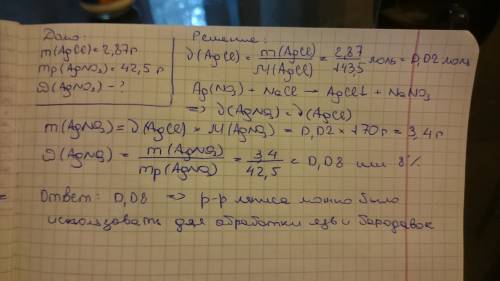 Дано:
m(AgCl)=2,87г
mр(AgNO₃)=42,5 г
ω(AgNO₃) - ?
Решение:
ν(AgCl) = m(AgCl)/M(AgCl) = 2,87/143,5 моль = 0,02 моль
Ag(NO₃) + NaCl → AgCl↓ + NaNO₃
⇒ ν(AgNO₃) = ν(AgCl)
m(AgNO₃) = ν(AgCl) × M(AgNO₃) = 0,02 × 170г = 3,4г
ω(AgNO₃) = m(AgNO₃)/mр(AgNO₃) = 3,4/42,5 = 0,08 или 8%
Ответ: 0,08 ⇒ р-р ляписа можно было
использовать для обработки язв и бородавок